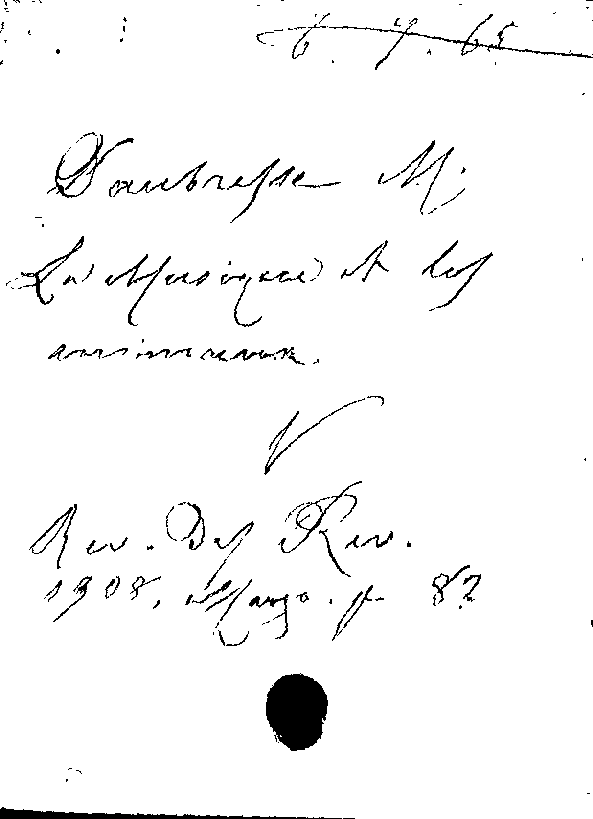 6. 7. 65
Daubresse M.
La Musique et les
animaux.
Rev. Des Rev.
1908, Marzo. p. 82